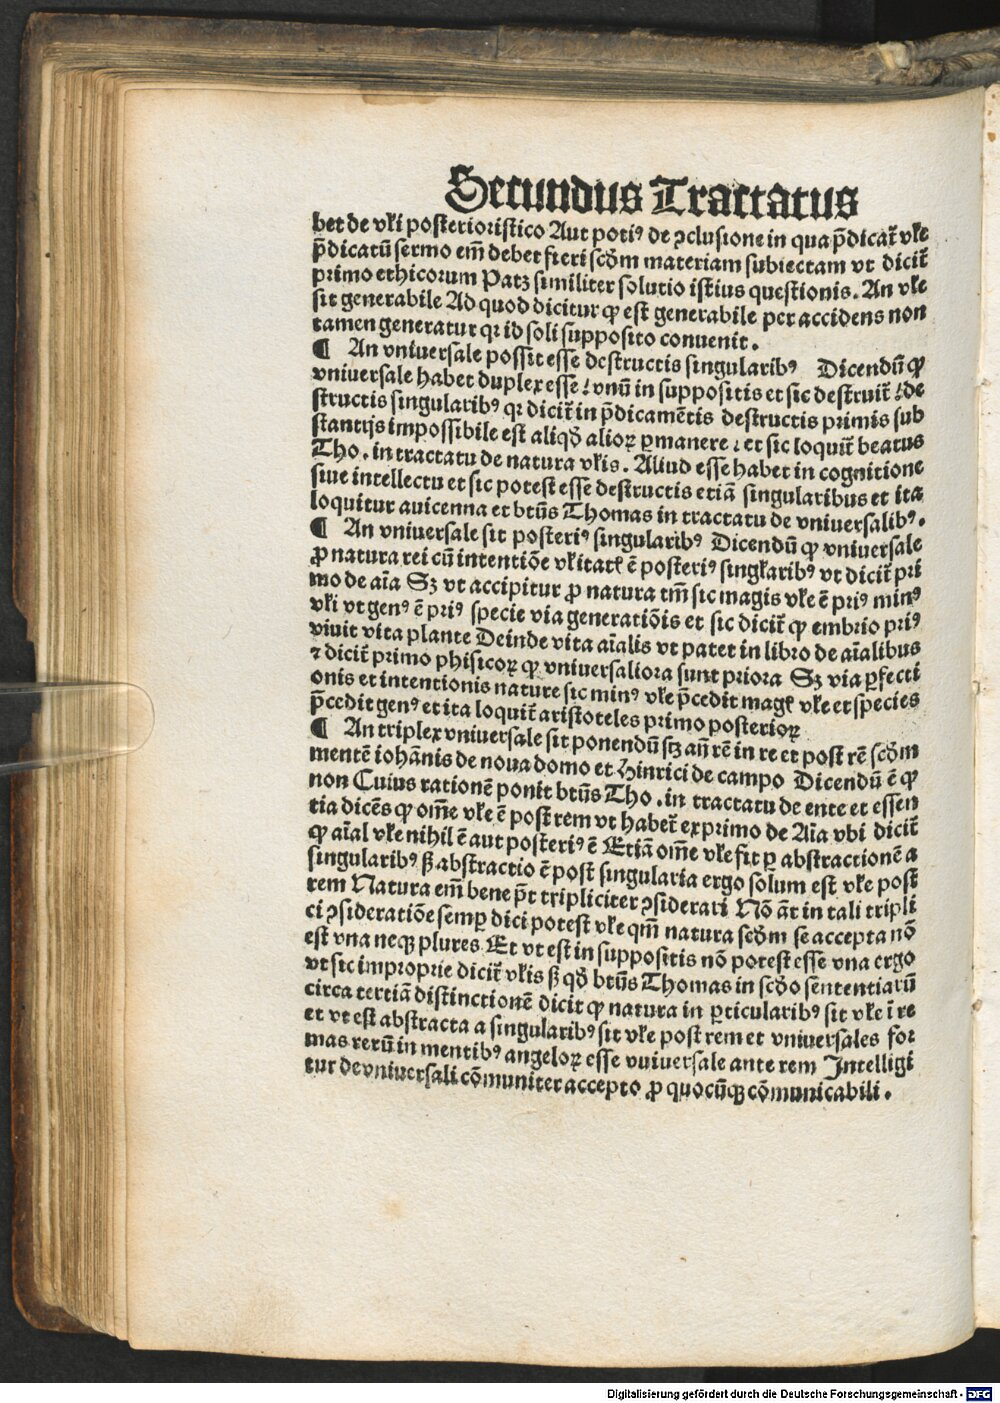 Secundus Tractatus
bet de vƚi posterioristico Aut potiꝰ de ↄclusione in qua p̄dicat᷑ vƚe
p̄dicatū sermo em̄ debet fieri scd̓m materiam subiectam vt dicit᷑
primo ethicorum Patꝫ similiter solutio istius questionis. An vƚe
sit generabile Ad quod dicitur ꝙ est generabile per accidens non
tamen generatur qꝛ id soli supposito conuenit.
¶ An vniuersale possit esse destructis singularibꝰ Dicendū ꝙ
vniuersale habet duplex esse / vnū in suppositis et sic destruit᷑ / de
structis singularibꝰ qꝛ dicit᷑ in p̄dicamētis destructis primis sub
stantijs impossibile est aliqd̓ alioꝝ ꝑmanere : et sic loquit᷑ beatus
Tho. in tractatu de natura vƚis. Aliud esse habet in cognitione
siue intellectu et sic potest esse destructis etiā singularibus et ita
loquitur auicenna et btūs Thomas in tractatu de vniuersalibꝰ.
¶ An vniuersale sit posteriꝰ singularibꝰ Dicendū ꝙ vniuersale
ꝓ natura rei cū intentiōe vƚitatꝭ ē posteriꝰ singƚaribꝰ vt dicit᷑ pri
mo de aīa Sꝫ vt accipitur ꝓ natura tm̄ sic magis vƚe ē priꝰ minꝰ
vƚi vt genꝰ ē priꝰ specie via generatiōis et sic dicit᷑ ꝙ embrio priꝰ
viuit vita plante Deinde vita aīalis vt patet in libro de aīalibus
⁊ dicit᷑ primo phisicoꝝ ꝙ vniuersaliora sunt priora Sꝫ via ꝑfecti
onis et intentionis nature sic minꝰ vƚe p̄cedit magꝭ vƚe et species
p̄cedit genꝰ et ita loquit᷑ aristoteles primo posterioꝝ
¶ An triplex vniuersale sit ponendū sꝫ an̄ rē in re et post rē scd̓m
mentē iohānis de noua domo et Hinrici de campo Dicendū ē ꝙ
non Cuius rationē ponit btūs Tho. in tractatu de ente et essen
tia dicēs ꝙ om̄e vƚe ē post rem vt habet᷑ ex primo de Aīa vbi dicit᷑
ꝙ aīal vƚe nihil ē aut posteriꝰ ē Etiā om̄e vƚe fit ꝑ abstractionē a
singularibꝰ ß abstractio ē post singularia ergo solum est vƚe post
rem Natura em̄ bene pōt tripliciter ↄsiderari Nō āt in tali tripli
ci ↄsideratiōe semꝑ dici potest vƚe qm̄ natura scd̓m se accepta nō
est vna neqꝫ plures Et vt est in suppositis nō potest esse vna ergo
vt sic improprie dicit᷑ vƚis ß qd̓ btūs Thomas in scd̓o sententiarū
circa tertiā distinctionē dicit ꝙ natura in ꝑticularibꝰ sit vƚe ī re
et vt est abstracta a singularibꝰ sit vƚe post rem et vniuersales for
mas rerū in mentibꝰ angeloꝝ esse vuiuersale ante rem Intelligi
tur de vniuersali cōmuniter accepto ꝓ quocūqꝫ cōmunicabili.
Digitalisierung gefördert durch die Deutsche Forschungsgemeinschaft - DFG